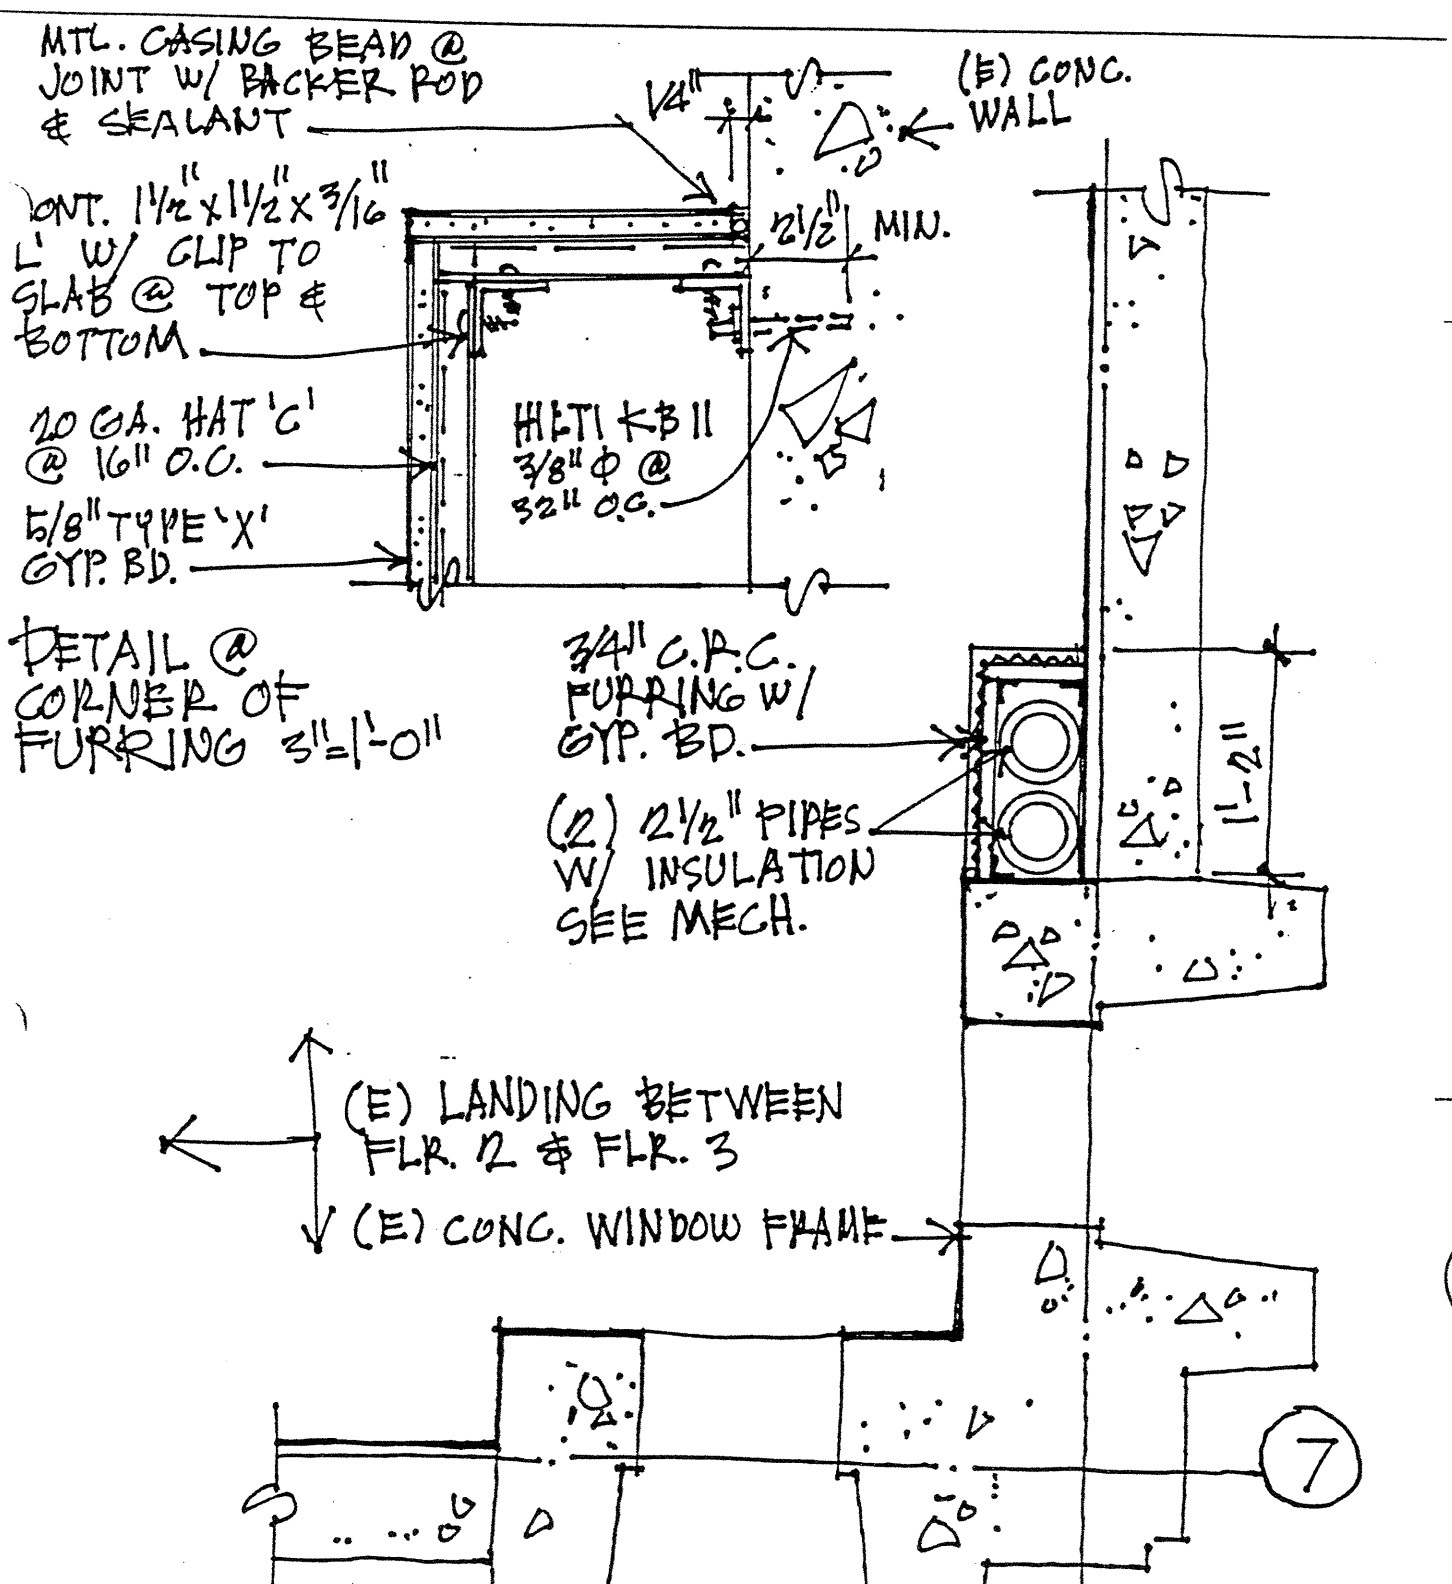 MTL. CASING BEAD @
JOINT W/ BACKER ROD
& SEALANT
1/4"
(E) CONC.
WALL
ONT. 1 1/2" X 1 1/2" X 3/16"
L' W/ CLIP TO
SLAB @ TOP &
BOTTOM
2 1/2" MIN.
20 GA. HAT 'C'
@ 16" O.C.
5/8" TYPE 'X'
GYP. BD.
HILTI KB II
3/8" Φ @
32" O.C.
DETAIL @
CORNER OF
FURRING 3"=1'-0"
3/4" C.R.C.
FURRING W/
GYP. BD.
(2) 2 1/2" PIPES
W/ INSULATION
SEE MECH.
1'-2"
(E) LANDING BETWEEN
FLR. 2 & FLR. 3
(E) CONC. WINDOW FRAME
7